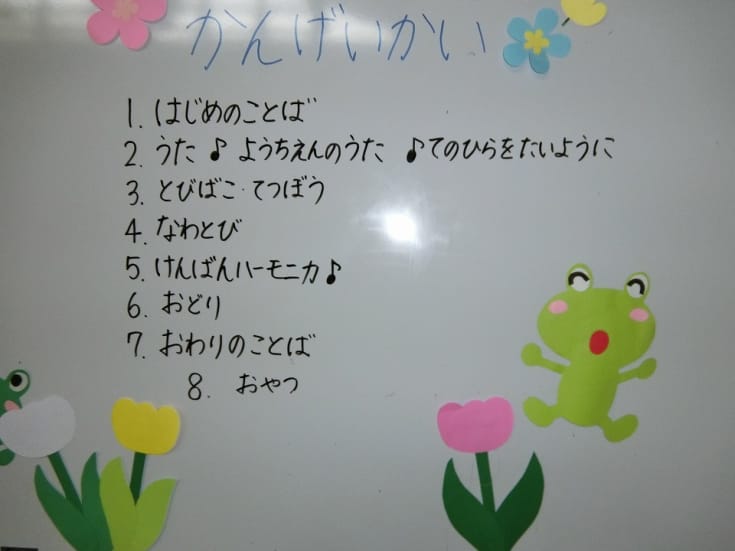 かんげいかい
1. はじめのことば
2. うた ♪ ようちえんのうた ♪てのひらをたいように
3. とびばこ・てつぼう
4. なわとび
5. けんばんハーモニカ♪
6. おどり
7. おわりのことば
8. おやつ